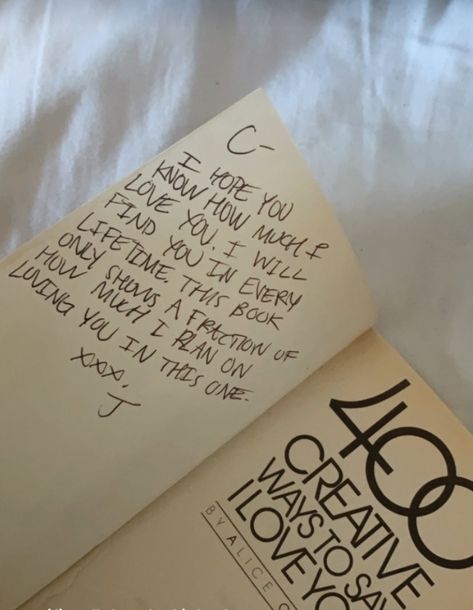 C-
I HOPE YOU
KNOW HOW MUCH I
LOVE YOU. I WILL
FIND YOU IN EVERY
LIFETIME. THIS BOOK
ONLY SHOWS A FRACTION OF
HOW MUCH I PLAN ON
LOVING YOU IN THIS ONE.
xxx,
J
400
CREATIVE
WAYS TO SAY
I LOVE YO
BY ALICE